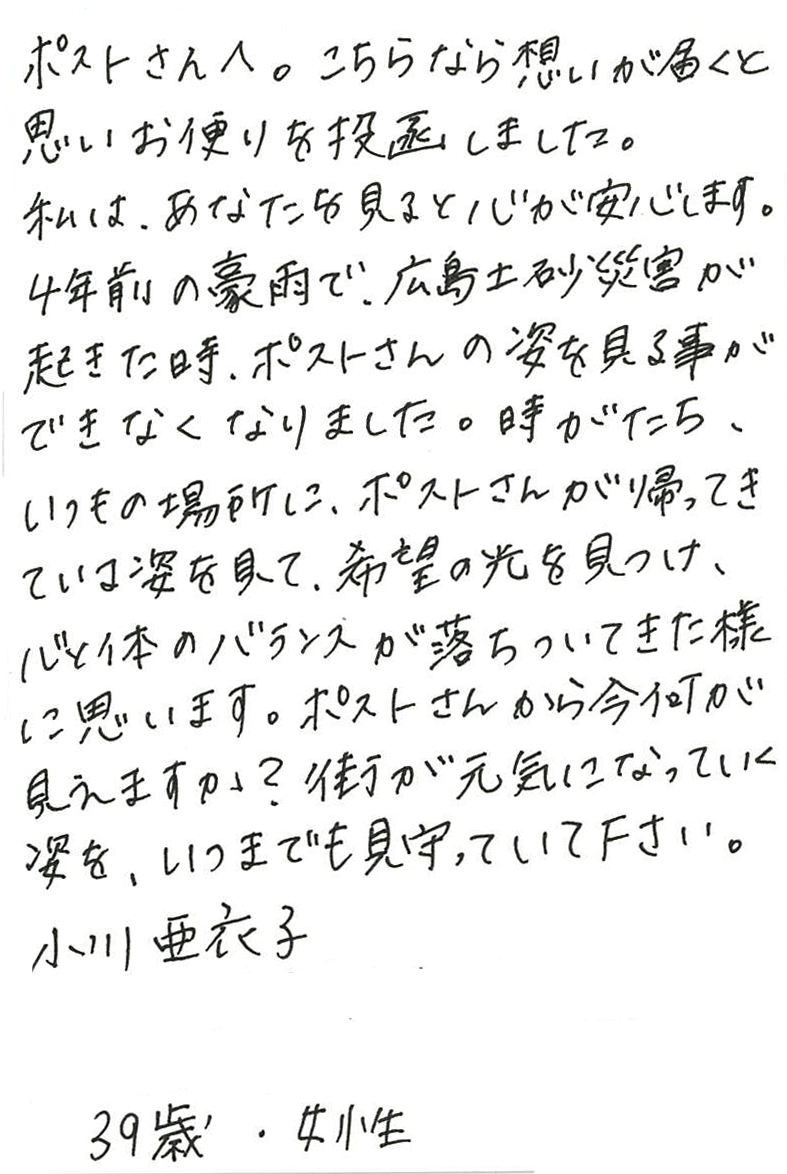 ポストさんへ。こちらなら想いが届くと
思いお便りを投函しました。
私は、あなたを見ると心が安心します。
4年前の豪雨で、広島土砂災害が
起きた時、ポストさんの姿を見る事が
できなくなりました。時がたち、
いつもの場所に、ポストさんが帰ってき
ている姿を見て、希望の光を見つけ、
心と体のバランスが落ちついてきた様
に思います。ポストさんから今何が
見えますか？街が元気になっていく
姿を、いつまでも見守っていて下さい。
小川亜衣子
39歳・女性